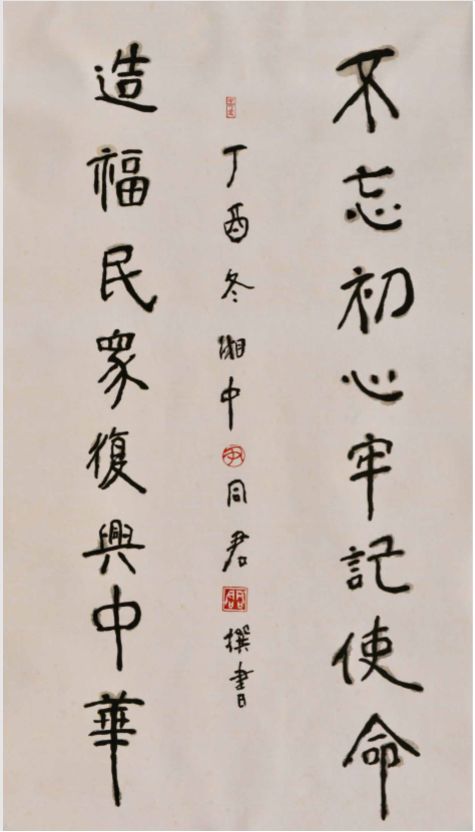 不忘初心牢記使命
丁酉冬湘中同君撰書
造福民眾復興中華